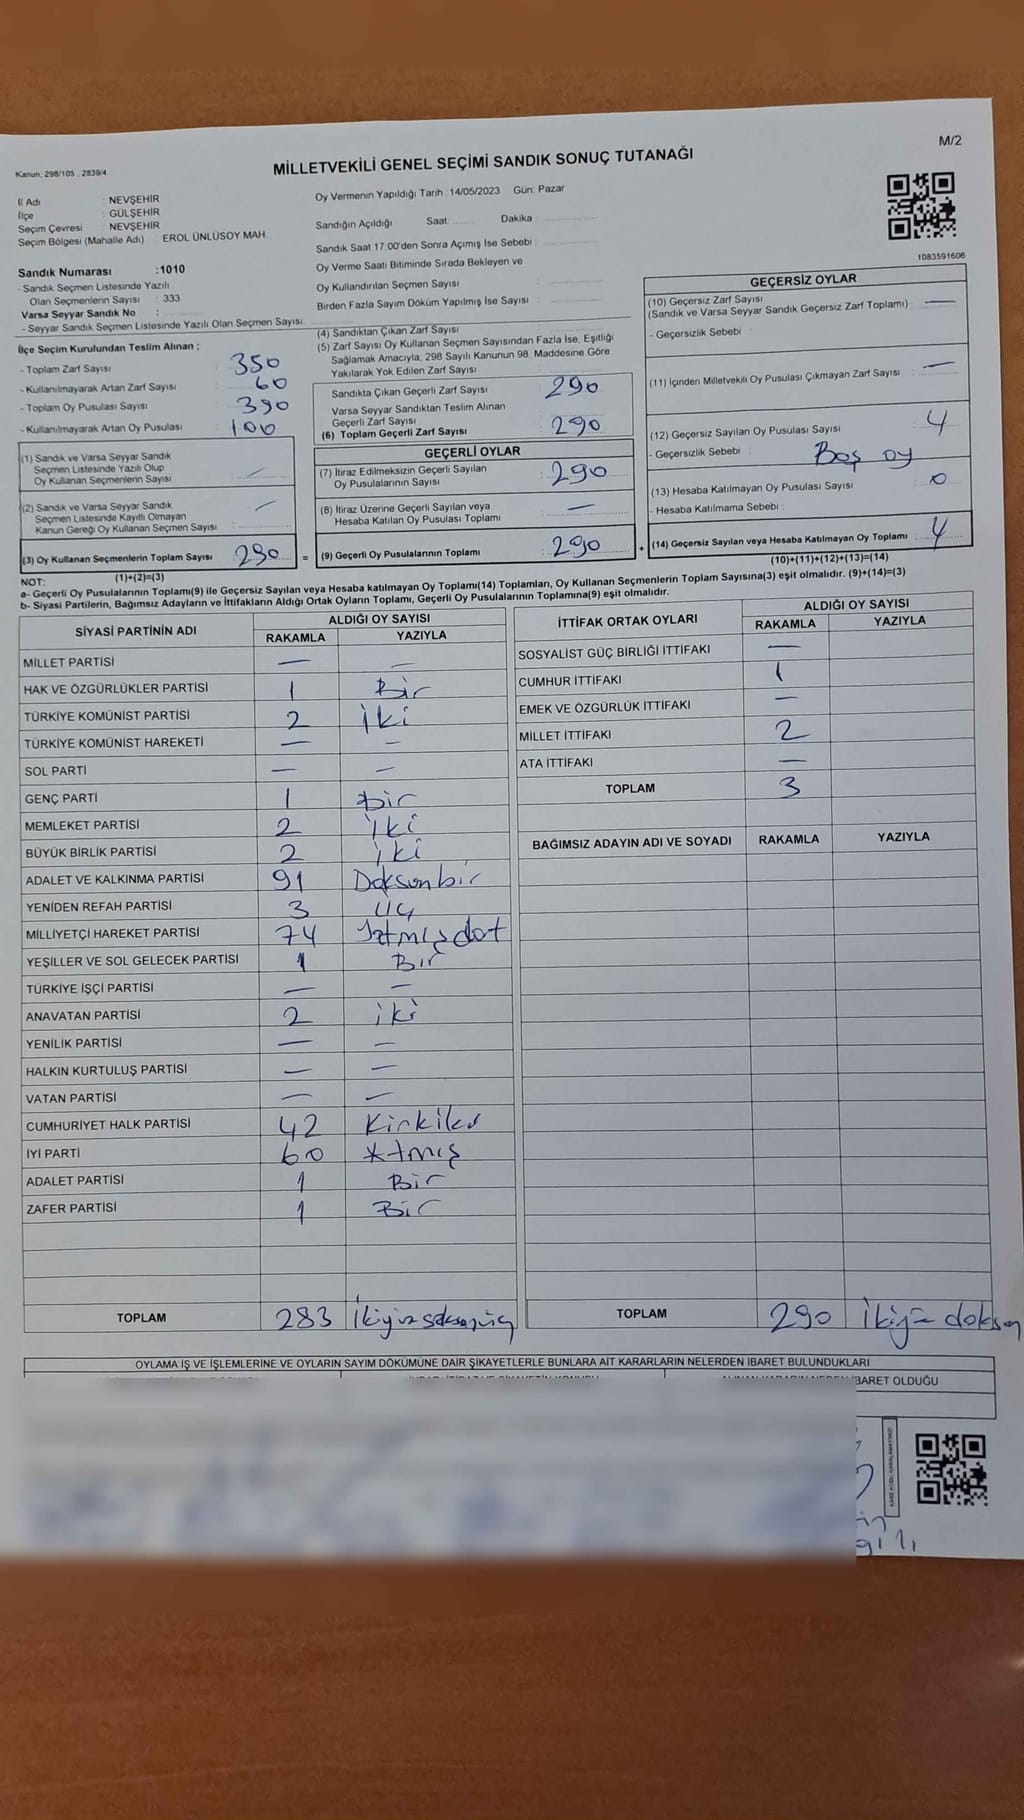 M/2
MİLLETVEKİLİ GENEL SEÇİMİ SANDIK SONUÇ TUTANAĞI
Kanun, 298/105 , 2839/4
İl Adı : NEVŞEHİR
İlçe : GÜLŞEHİR
Seçim Çevresi : NEVŞEHİR
Seçim Bölgesi (Mahalle Adı) : EROL ÜNLÜSOY MAH.
Sandık Numarası :1010
- Sandık Seçmen Listesinde Yazılı
Olan Seçmenlerin Sayısı : 333
Varsa Seyyar Sandık No :
- Seyyar Sandık Seçmen Listesinde Yazılı Olan Seçmen Sayısı
İlçe Seçim Kurulundan Teslim Alınan ;
- Toplam Zarf Sayısı : 350
- Kullanılmayarak Artan Zarf Sayısı : 60
- Toplam Oy Pusulası Sayısı : 390
- Kullanılmayarak Artan Oy Pusulası : 100
(1) Sandık ve Varsa Seyyar Sandık
Seçmen Listesinde Yazılı Olup
Oy Kullanan Seçmenlerin Sayısı : —
(2) Sandık ve Varsa Seyyar Sandık
Seçmen Listesinde Kayıtlı Olmayan
Kanun Gereği Oy Kullanan Seçmen Sayısı : —
(3) Oy Kullanan Seçmenlerin Toplam Sayısı : 290
(1)+(2)=(3)
Oy Vermenin Yapıldığı Tarih : 14/05/2023 Gün: Pazar
Sandığın Açıldığı Saat: Dakika :
Sandık Saat 17:00'den Sonra Açımış İse Sebebi :
Oy Verme Saati Bitiminde Sırada Bekleyen ve
Oy Kullandırılan Seçmen Sayısı :
Birden Fazla Sayım Döküm Yapılmış İse Sayısı :
(4) Sandıktan Çıkan Zarf Sayısı :
(5) Zarf Sayısı Oy Kullanan Seçmen Sayısından Fazla İse, Eşitliği
Sağlamak Amacıyla, 298 Sayılı Kanunun 98. Maddesine Göre
Yakılarak Yok Edilen Zarf Sayısı :
Sandıkta Çıkan Geçerli Zarf Sayısı : 290
Varsa Seyyar Sandıktan Teslim Alınan
Geçerli Zarf Sayısı :
(6) Toplam Geçerli Zarf Sayısı : 290
GEÇERLİ OYLAR
(7) İtiraz Edilmeksizin Geçerli Sayılan
Oy Pusulalarının Sayısı : 290
(8) İtiraz Üzerine Geçerli Sayılan veya
Hesaba Katılan Oy Pusulası Toplamı : —
= (9) Geçerli Oy Pusulalarının Toplamı : 290
1083591606
GEÇERSİZ OYLAR
(10) Geçersiz Zarf Sayısı
(Sandık ve Varsa Seyyar Sandık Geçersiz Zarf Toplamı) : —
- Geçersizlik Sebebi :
(11) İçinden Milletvekili Oy Pusulası Çıkmayan Zarf Sayısı : —
(12) Geçersiz Sayılan Oy Pusulası Sayısı : 4
- Geçersizlik Sebebi : Boş oy
(13) Hesaba Katılmayan Oy Pusulası Sayısı : 0
- Hesaba Katılmama Sebebi :
+ (14) Geçersiz Sayılan veya Hesaba Katılmayan Oy Toplamı : 4
(10)+(11)+(12)+(13)=(14)
NOT:
a- Geçerli Oy Pusulalarının Toplamı(9) ile Geçersiz Sayılan veya Hesaba katılmayan Oy Toplamı(14) Toplamları, Oy Kullanan Seçmenlerin Toplam Sayısına(3) eşit olmalıdır. (9)+(14)=(3)
b- Siyasi Partilerin, Bağımsız Adayların ve İttifakların Aldığı Ortak Oyların Toplamı, Geçerli Oy Pusulalarının Toplamına(9) eşit olmalıdır.
SİYASİ PARTİNİN ADI ALDIĞI OY SAYISI
RAKAMLA YAZIYLA
MİLLET PARTİSİ — —
HAK VE ÖZGÜRLÜKLER PARTİSİ 1 Bir
TÜRKİYE KOMÜNİST PARTİSİ 2 İki
TÜRKİYE KOMÜNİST HAREKETİ — —
SOL PARTİ — —
GENÇ PARTİ 1 Bir
MEMLEKET PARTİSİ 2 İki
BÜYÜK BİRLİK PARTİSİ 2 iki
ADALET VE KALKINMA PARTİSİ 91 Doksanbir
YENİDEN REFAH PARTİSİ 3 Üç
MİLLİYETÇİ HAREKET PARTİSİ 74
YEŞİLLER VE SOL GELECEK PARTİSİ 1 Bir
TÜRKİYE İŞÇİ PARTİSİ — —
ANAVATAN PARTİSİ 2 iki
YENİLİK PARTİSİ — —
HALKIN KURTULUŞ PARTİSİ — —
VATAN PARTİSİ — —
CUMHURİYET HALK PARTİSİ 42 Kırkiki
İYİ PARTİ 60 Atmış
ADALET PARTİSİ 1 Bir
ZAFER PARTİSİ 1 Bir
TOPLAM 283 İkiyüzseksenüç
İTTİFAK ORTAK OYLARI ALDIĞI OY SAYISI
RAKAMLA YAZIYLA
SOSYALİST GÜÇ BİRLİĞİ İTTİFAKI —
CUMHUR İTTİFAKI 1
EMEK VE ÖZGÜRLÜK İTTİFAKI —
MİLLET İTTİFAKI 2
ATA İTTİFAKI —
TOPLAM 3
BAĞIMSIZ ADAYIN ADI VE SOYADI RAKAMLA YAZIYLA
TOPLAM 290 İkiyüz doksan
OYLAMA İŞ VE İŞLEMLERİNE VE OYLARIN SAYIM DÖKÜMÜNE DAİR ŞİKAYETLERLE BUNLARA AİT KARARLARIN NELERDEN İBARET BULUNDUKLARI
İBARET OLDUĞU